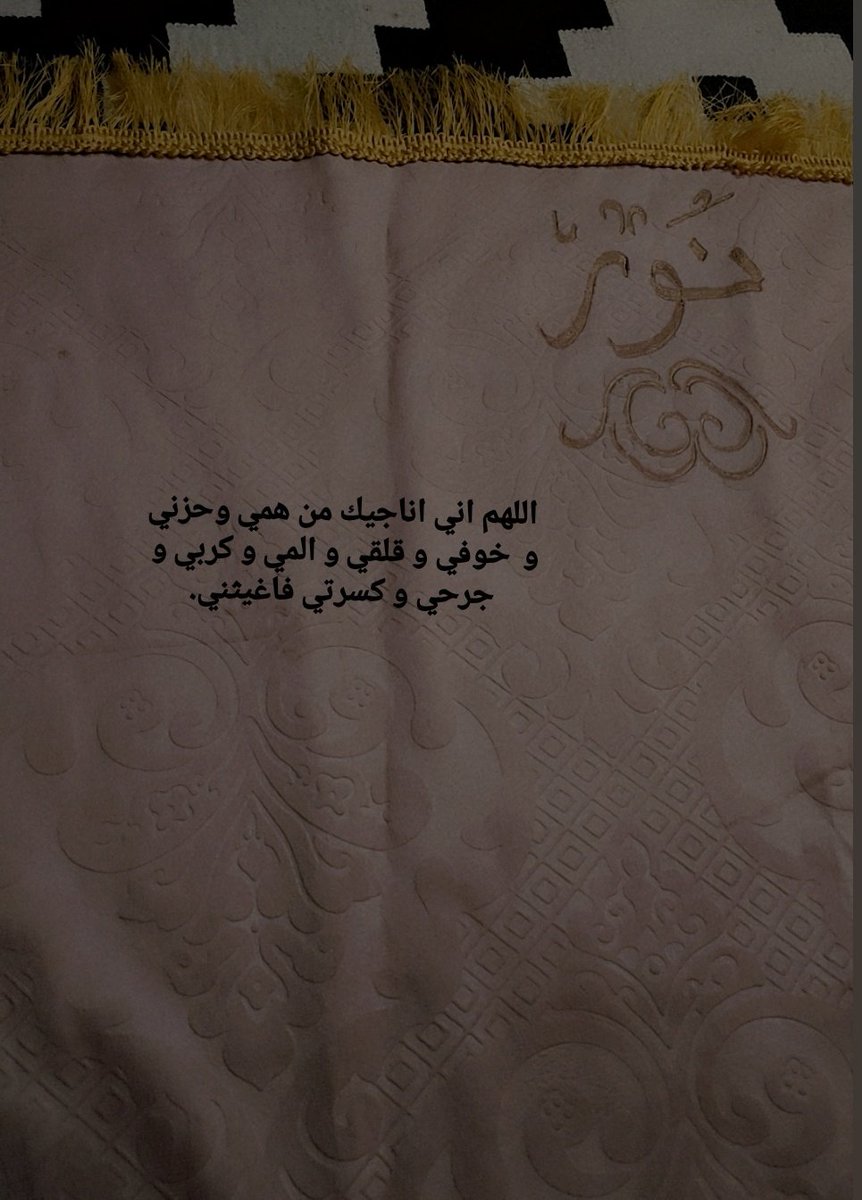 نور
اللهم اني اناجيك من همي وحزني
و خوفي و قلقي و المي و كربي و
جرحي و كسرتي فاغيثني.